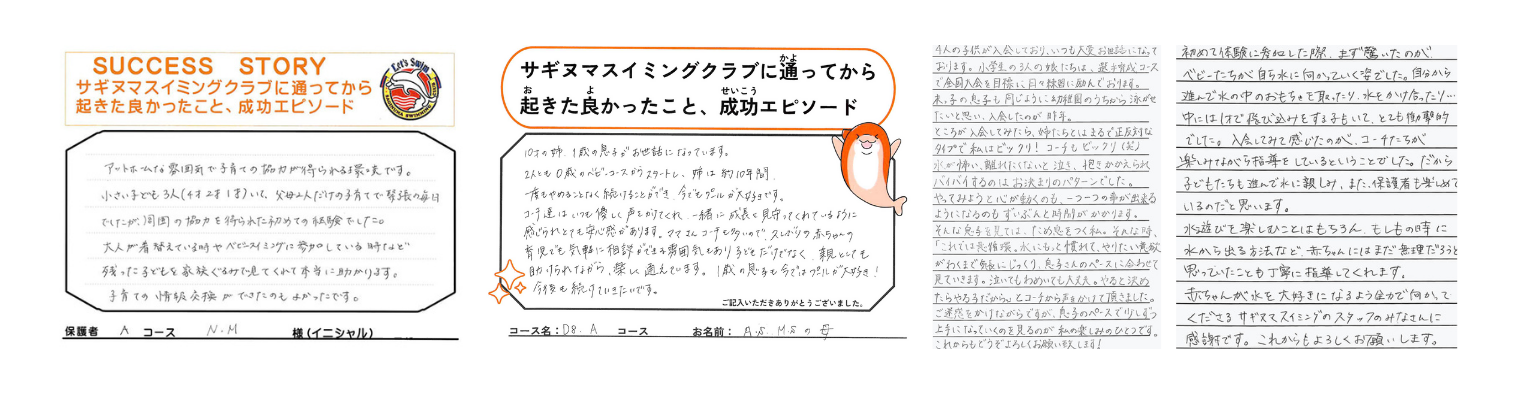 SUCCESS STORY
サギヌマスイミングクラブに通ってから
起きた良かったこと、成功エピソード
Let's Swim
アットホームな雰囲気で子育ての協力が得られる環境です。
小さい子ども3人(4才2才1才)いて、父母2人だけの子育てで緊張の毎日
でしたが、周囲の協力を得られた初めての経験でした。
大人が着替えている時やベビースイミングに参加している時など
残った子どもを家族ぐるみで見てくれて本当に助かります。
子育ての情報交換ができたのもよかったです。
保護者 A コース N.M 様(イニシャル)
サギヌマスイミングクラブに通ってから
かよ
起きた良かったこと、成功エピソード
お よ せいこう
10才の姉、1歳の息子がお世話になっています。
2人とも0歳のベビーコースからスタートし、姉は約10年間、
一度もやめることなく続けることができ、今でもプールが大好きです。
コーチ達はいつも優しく声をかけてくれ、一緒に成長を見守ってくれているように
感じられとても安心感があります。ママさんコーチも多いので、久しぶりの赤ちゃんの
育児でも気軽に相談ができる雰囲気もあり子どもだけでなく、親としても
助けられながら、楽しく通えています。1歳の息子も今ではプールが大好き!
今後も続けていきたいです。
ご記入いただきありがとうございました。
コース名:D8.A コース お名前: A.S. M.Sの母
4人の子供が入会しており、いつも大変お世話になって
おります。小学生の3人の娘たちは、選手育成コース
で全国大会を目標に日々練習に励んでおります。
末っ子の息子も同じように幼稚園のうちから泳がせ
たいと思い、入会したのが昨年。
ところが入会してみたら、姉たちとはまるで正反対な
タイプで私はビックリ!コーチもビックリ(笑)
水が怖い、離れたくないと泣き、抱きかかえられ
バイバイするのはお決まりのパターンでした。
やってみようと心が動くのも、一つ一つの事が出来る
ようになるのもずいぶんと時間がかかります。
そんな息子を見ては、ため息をつく私。そんな時、
「これでは悪循環。水にもっと慣れて、やりたい意欲
がわくまで気長にじっくり、息子さんのペースに合わせて
見ていきます。泣いてもわめいても大丈夫。やると決め
たらやる子だから。」とコーチから声をかけて頂きました。
ご迷惑をかけながらですが、息子のペースで少しずつ
上手になっていくのを見るのが私の楽しみのひとつです。
これからもどうぞよろしくお願い致します!
初めて体験に参加した際、まず驚いたのが
ベビーたちが自ら水に向かっていく姿でした。自分から
進んで水の中のおもちゃを取ったり、水をかけ合ったり…
中には1才で飛び込みをする子もいて、とても衝撃的
でした。入会してみて感じたのが、コーチたちが
楽しみながら指導をしているということでした。だから
子どもたちも進んで水に親しみ、また、保護者も楽しめて
いるのだと思います。
水遊びを楽しむことはもちろん、もしもの時に
水から出る方法など、赤ちゃんにはまだ無理だろうと
思っていたことも丁寧に指導してくれます。
赤ちゃんが水を大好きになるよう全力で向かって
くださるサギヌマスイミングのスタッフのみなさんに
感謝です。これからもよろしくお願いします。